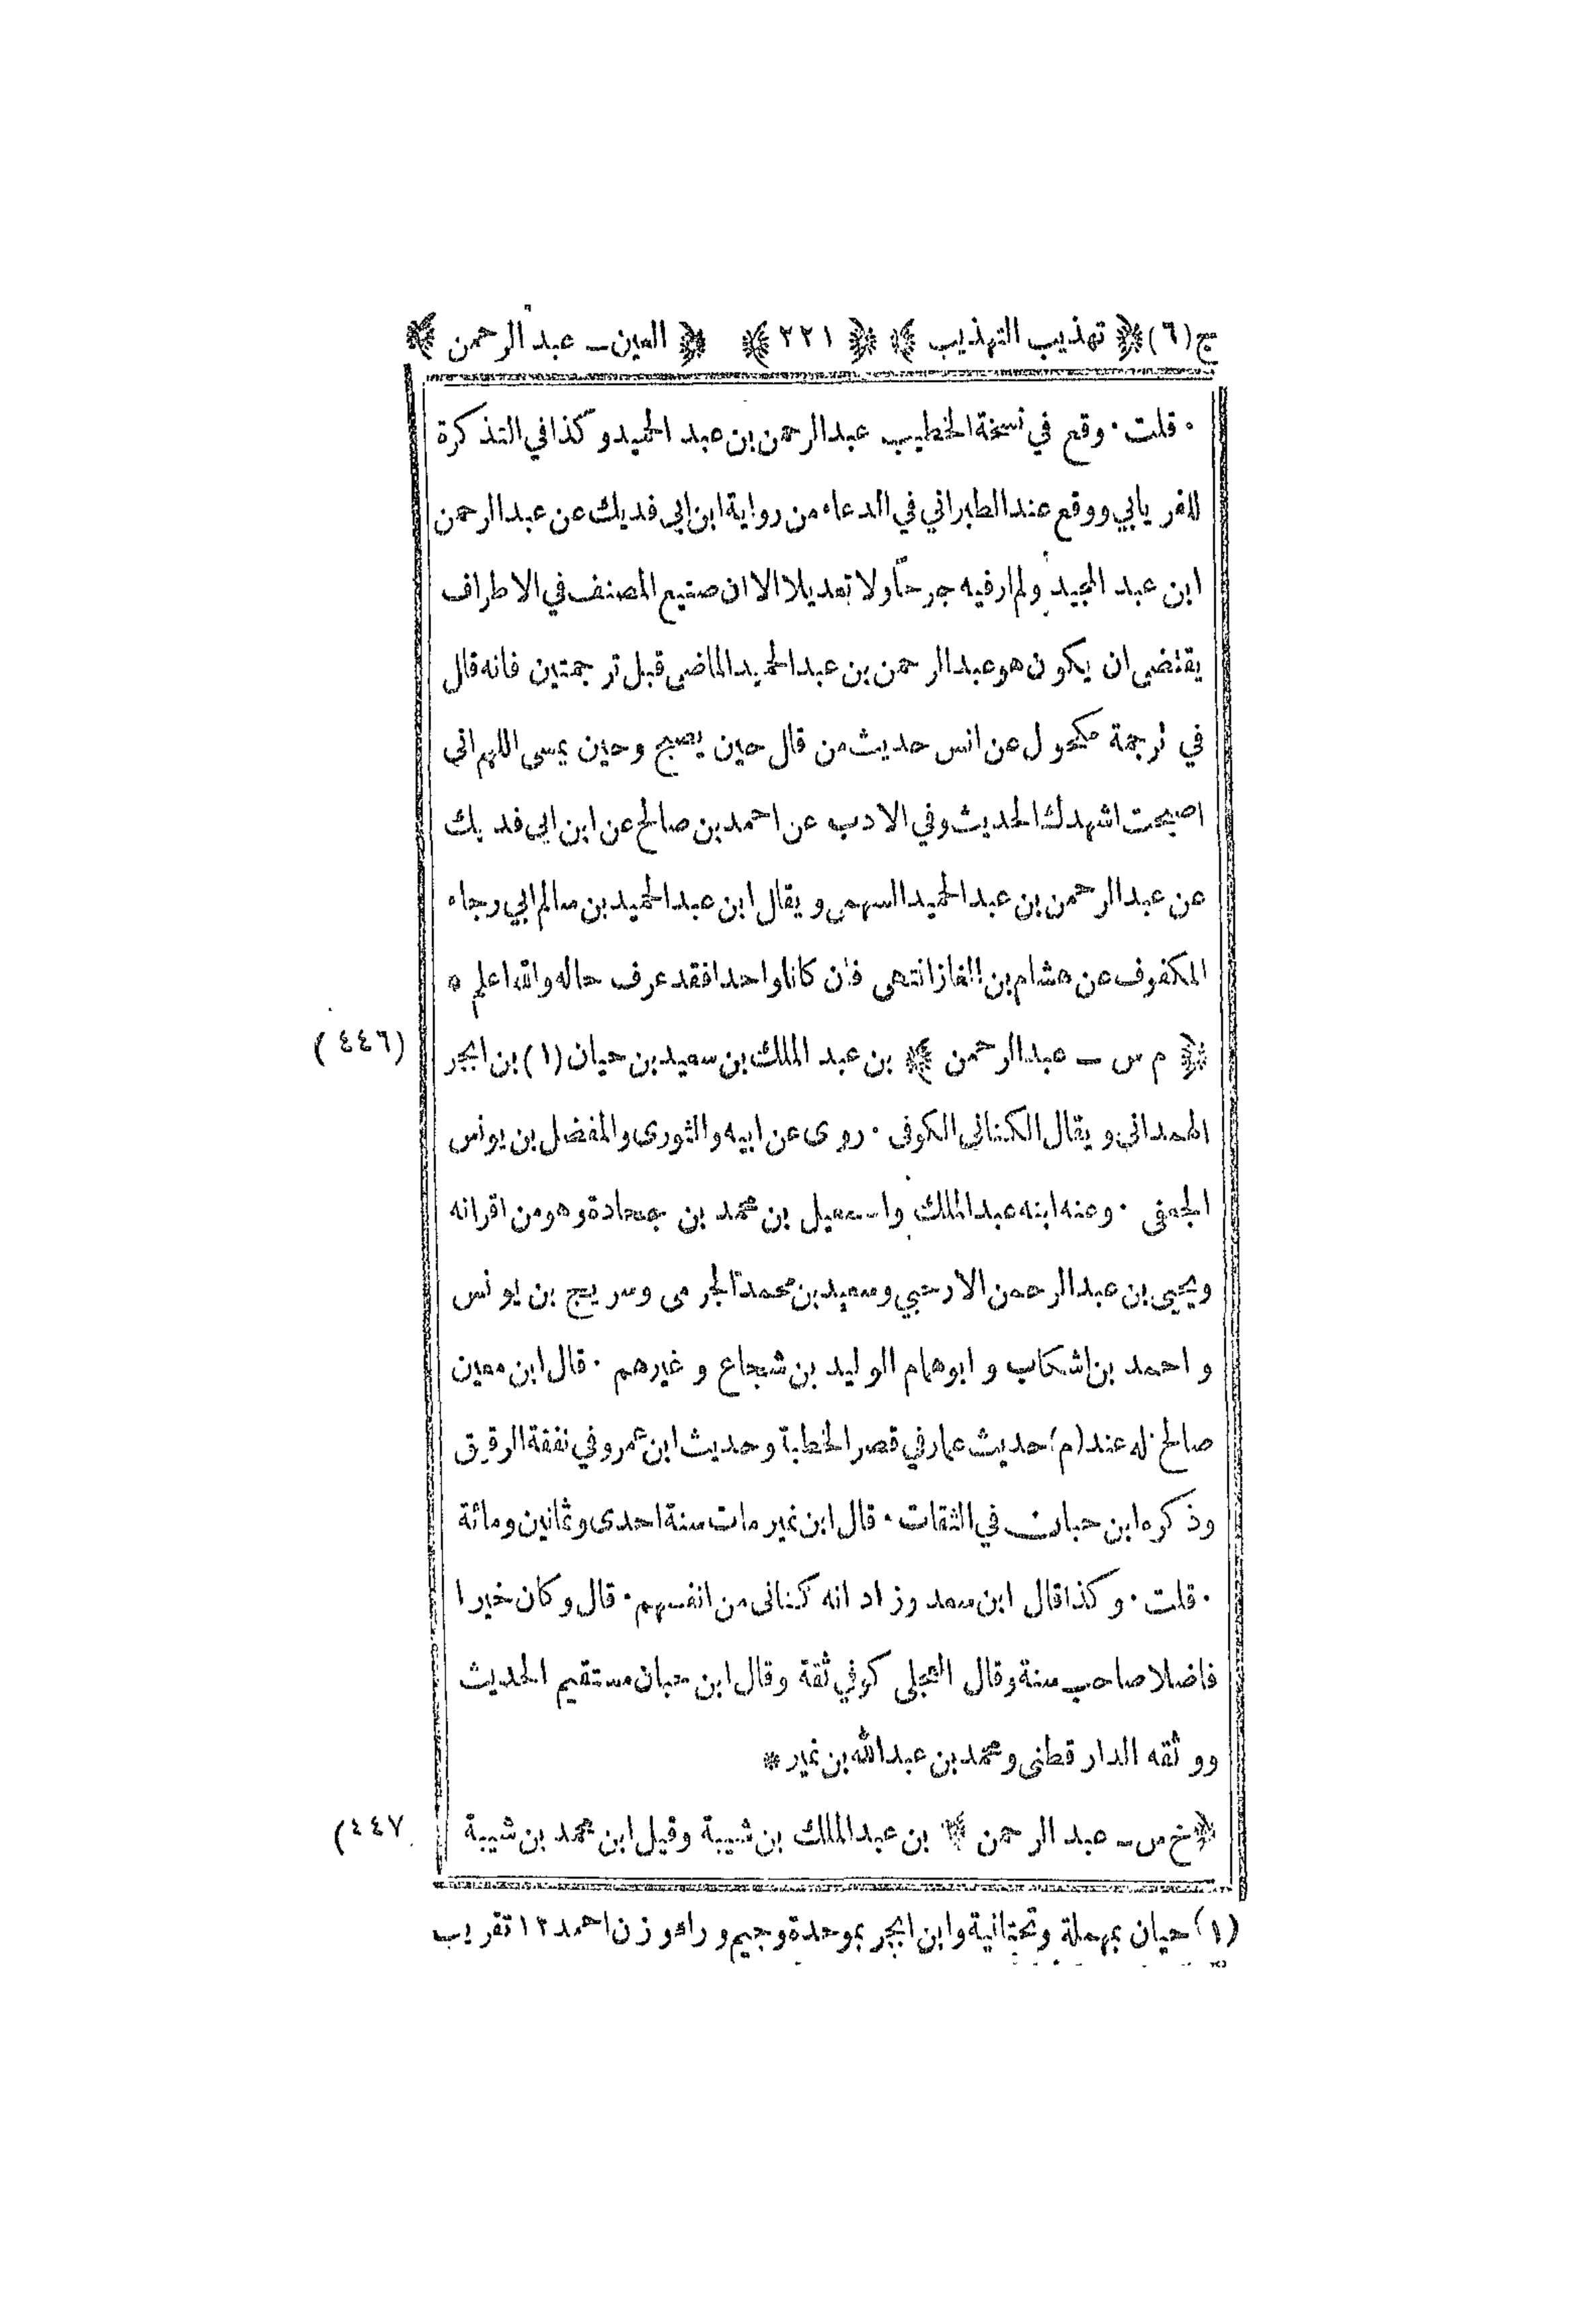 ج(٦) ﴿ تهذيب التهذيب ﴾ ﴿ ٢٢١ ﴾ ﴿ العين ــ عبد الرحمن ﴾
· قلت · وقع في نسخة الخطيب عبد الرحمن بن عبد الحميد وكذا في التذكرة
للفريابي ووقع عند الطبراني في الدعاء من رواية ابن ابى فديك عن عبد الرحمن
ابن عبد المجيد ولم ار فيه جرحا ولا تعديلا الا ان صنيع المصنف في الاطراف
يقتضى ان يكون هو عبد الرحمن بن عبد الحميد الماضى قبل ترجمتين فانه قال
في ترجمة مكحول عن انس حديث من قال حين يصبح وحين يمسى اللهم انى
اصبحت اشهدك الحديث وفي الادب عن احمد بن صالح عن ابن ابي فديك
عن عبد الرحمن بن عبد الحميد السهمى ويقال ابن عبد الحميد بن سالم ابي رجاء
المكفوف عن هشام بن الغاز انتهى فان كانا واحدا فقد عرف حاله والله اعلم *
﴿ م س ــ عبد الرحمن ﴾ بن عبد الملك بن سعيد بن حيان (١) بن ابجر (٤٤٦)
الهمدانى ويقال الكنانى الكوفى · روى عن ابيه والثورى والمفضل بن يونس
الجعفى · وعنه ابنه عبد الملك واسمعيل بن محمد بن جحادة وهو من اقرانه
ويحيى بن عبد الرحمن الارحبي وسعيد بن محمد الجرمى وسريج بن يونس
و احمد بن اشكاب و ابو همام الوليد بن شجاع و غيرهم · قال ابن معين
صالح له عند (م) حديث عمار في قصر الخطبة وحديث ابن عمرو في نفقة الرقيق
وذكره ابن حبان في الثقات · قال ابن نمير مات سنة احدى وثمانين ومائة
· قلت · وكذا قال ابن سعد وزاد انه كنانى من انفسهم · قال وكان خيرا
فاضلا صاحب سنة وقال العجلى كوفي ثقة وقال ابن حبان مستقيم الحديث
ووثقه الدار قطنى ومحمد بن عبد الله بن نمير *
﴿ خ س ــ عبد الرحمن ﴾ بن عبد الملك بن شيبة وقيل ابن محمد بن شيبة (٤٤٧
(١) حيان بمهملة وتحتانية وابن ابجر بموحدة وجيم وراء وزن احمد ١٢ تقريب